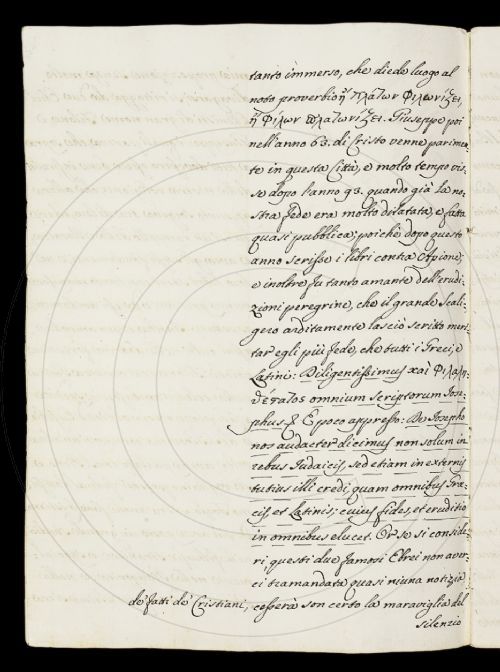 tanto immerso, che diede luogo al
noto proverbio ἢ Πλάτων Φιλωνίζει,
ἢ Φίλων Πλατωνίζει. Giuseppe poi
nell'anno 63. di Cristo venne parimen
te in questa Città, e molto tempo vis-
se dopo l'anno 93. quando già la no-
stra fede era molto dilatata, e fatta
quasi pubblica; poichè dopo questo
anno scrisse i libri contra Apione;
e inoltre fu tanto amante dell'erudi-
zioni peregrine, che il grande Scali-
gero arditamente lasciò scritto meri
tar egli più fede, che tutti i Greci, e
Latini: Diligentissimus καὶ Φιλαλη-
θέςατος omnium scriptorum Iose-
phus. E poco appresso: De Josepho
nos audacter dicimus non solum in
rebus Iudaicis, sed etiam in externis
tutius illi credi, quam omnibus Græ-
cis, et Latinis; cuius fides, et eruditio
in omnibus elucet. Or se si conside-
ri questi due famosi Ebrei non aver-
ci tramandata quasi niuna notizia
de' fatti de' Cristiani, cesserà son certo la maraviglia del
silenzio